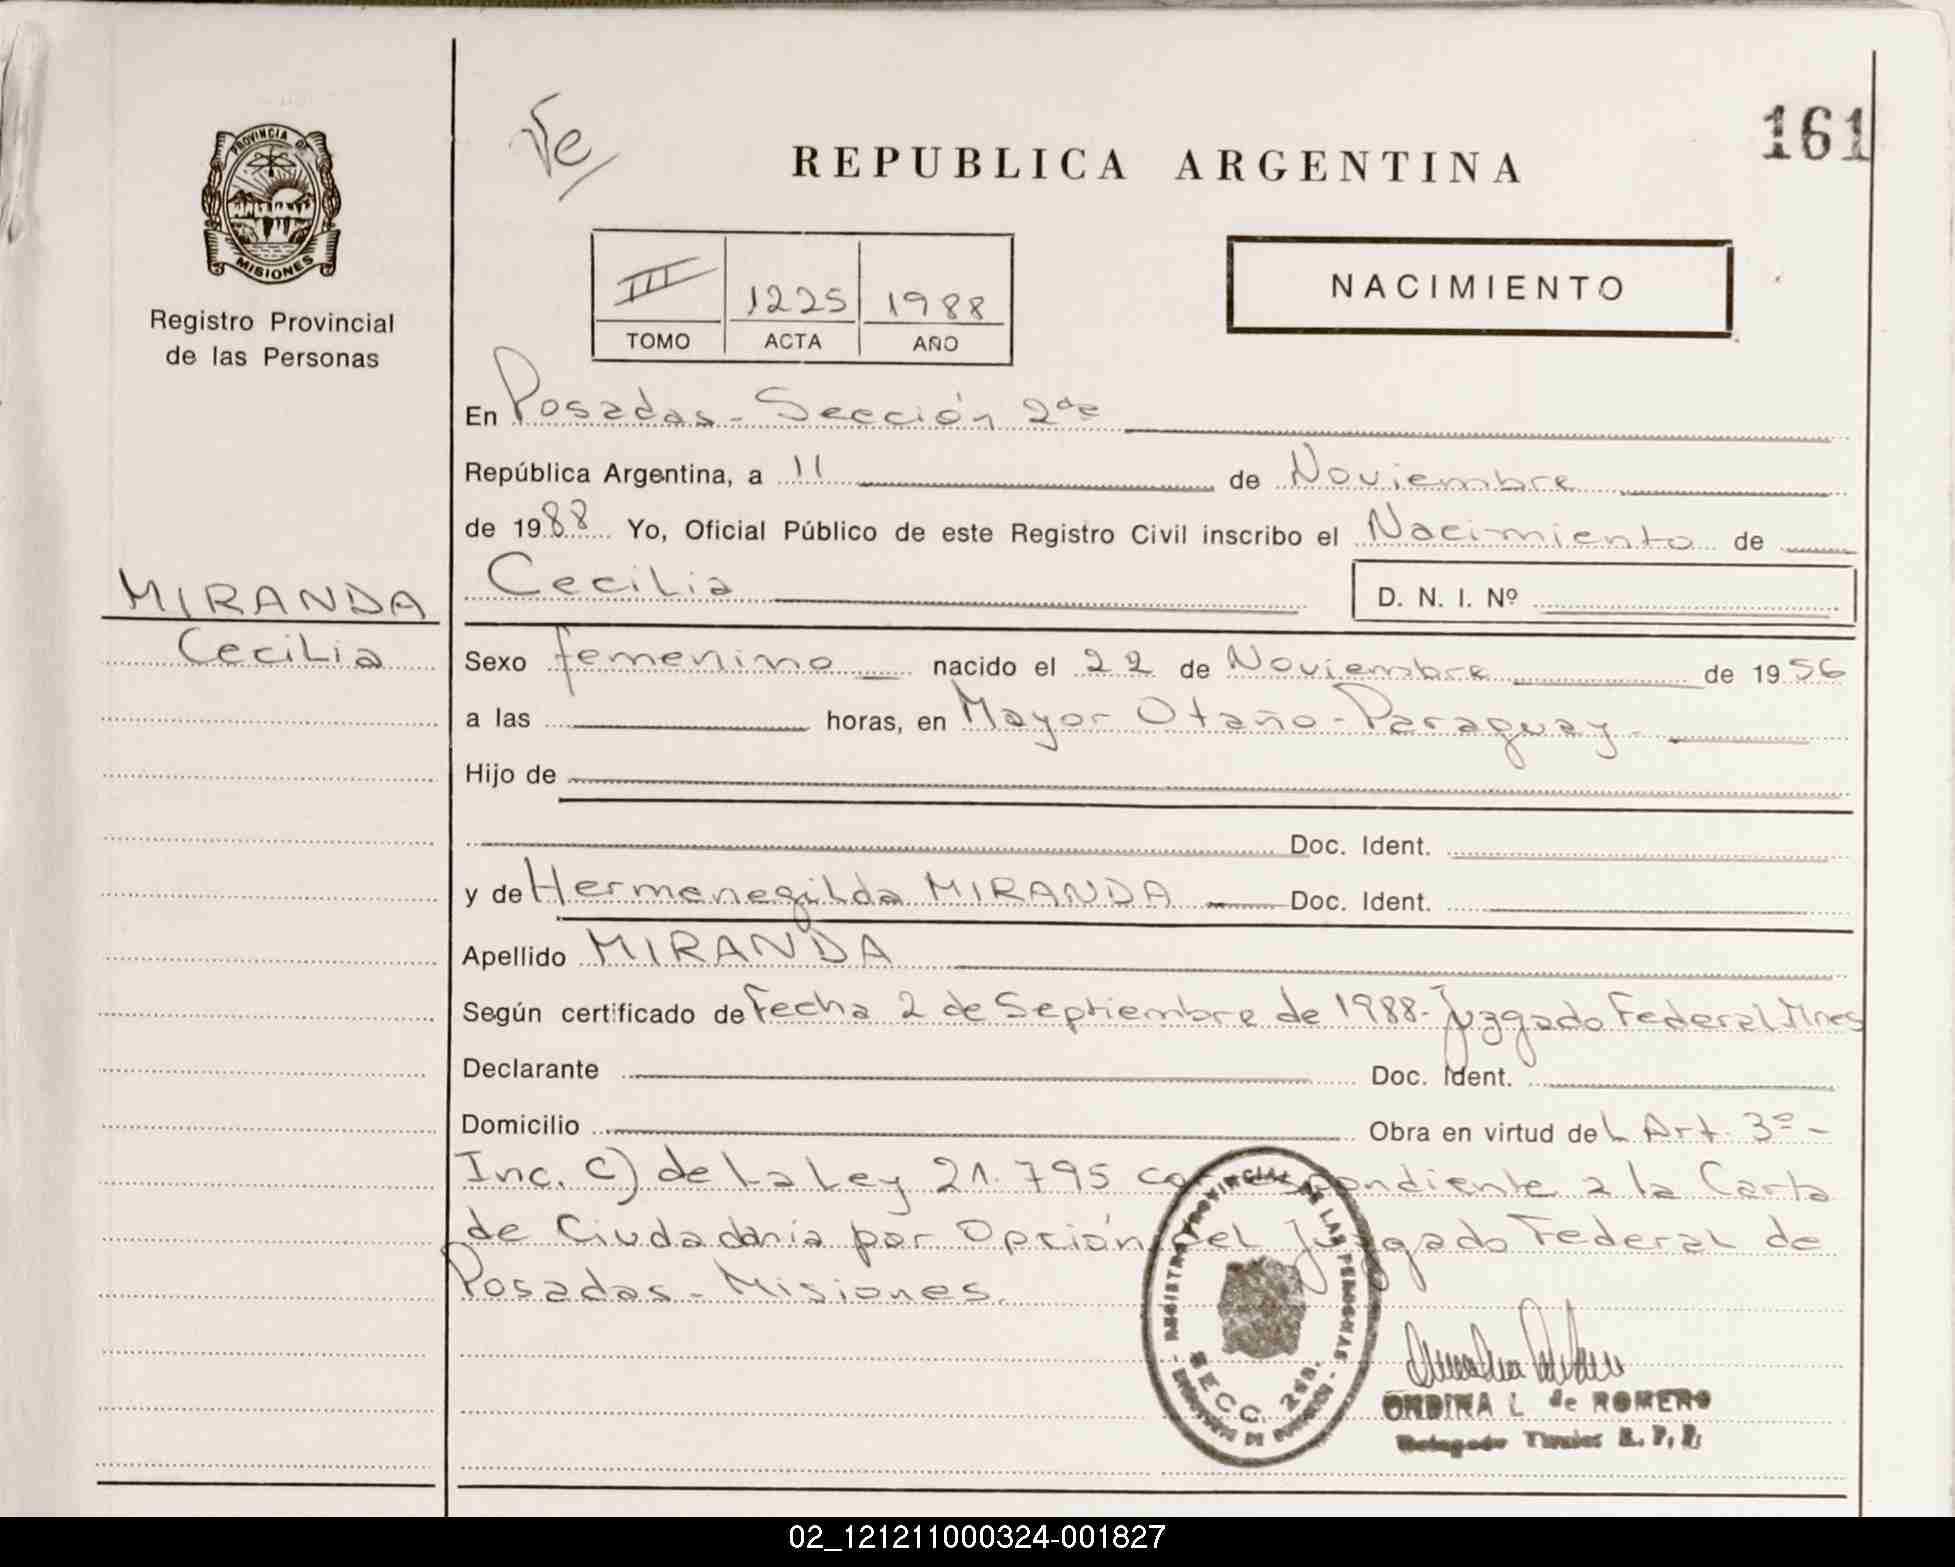 161
Ve
REPUBLICA ARGENTINA
PROVINCIA DE
MISIONES
Registro Provincial
de las Personas
III 1225 1988
TOMO ACTA AÑO
NACIMIENTO
En Posadas - Sección 2da
República Argentina, a 11 de Noviembre
de 1988 Yo, Oficial Público de este Registro Civil inscribo el Nacimiento de
Cecilia D. N. I. Nº
MIRANDA
Cecilia
Sexo femenino nacido el 22 de Noviembre de 1956
a las horas, en Mayor Otaño - Paraguay -
Hijo de
Doc. Ident.
y de Hermenegilda MIRANDA Doc. Ident.
Apellido MIRANDA
Según certificado de Fecha 2 de Septiembre de 1988 - Juzgado Federal Mnes
Declarante Doc. Ident.
Domicilio Obra en virtud del Art. 3º -
Inc. C) de La Ley 21.795 correspondiente a la Carta
de Ciudadanía por Opción del Juzgado Federal de
Posadas - Misiones.
REGISTRO PROVINCIAL DE LAS PERSONAS
SECC. 2da.
ONDINA L de ROMERO
R. P. P.
02_121211000324-001827